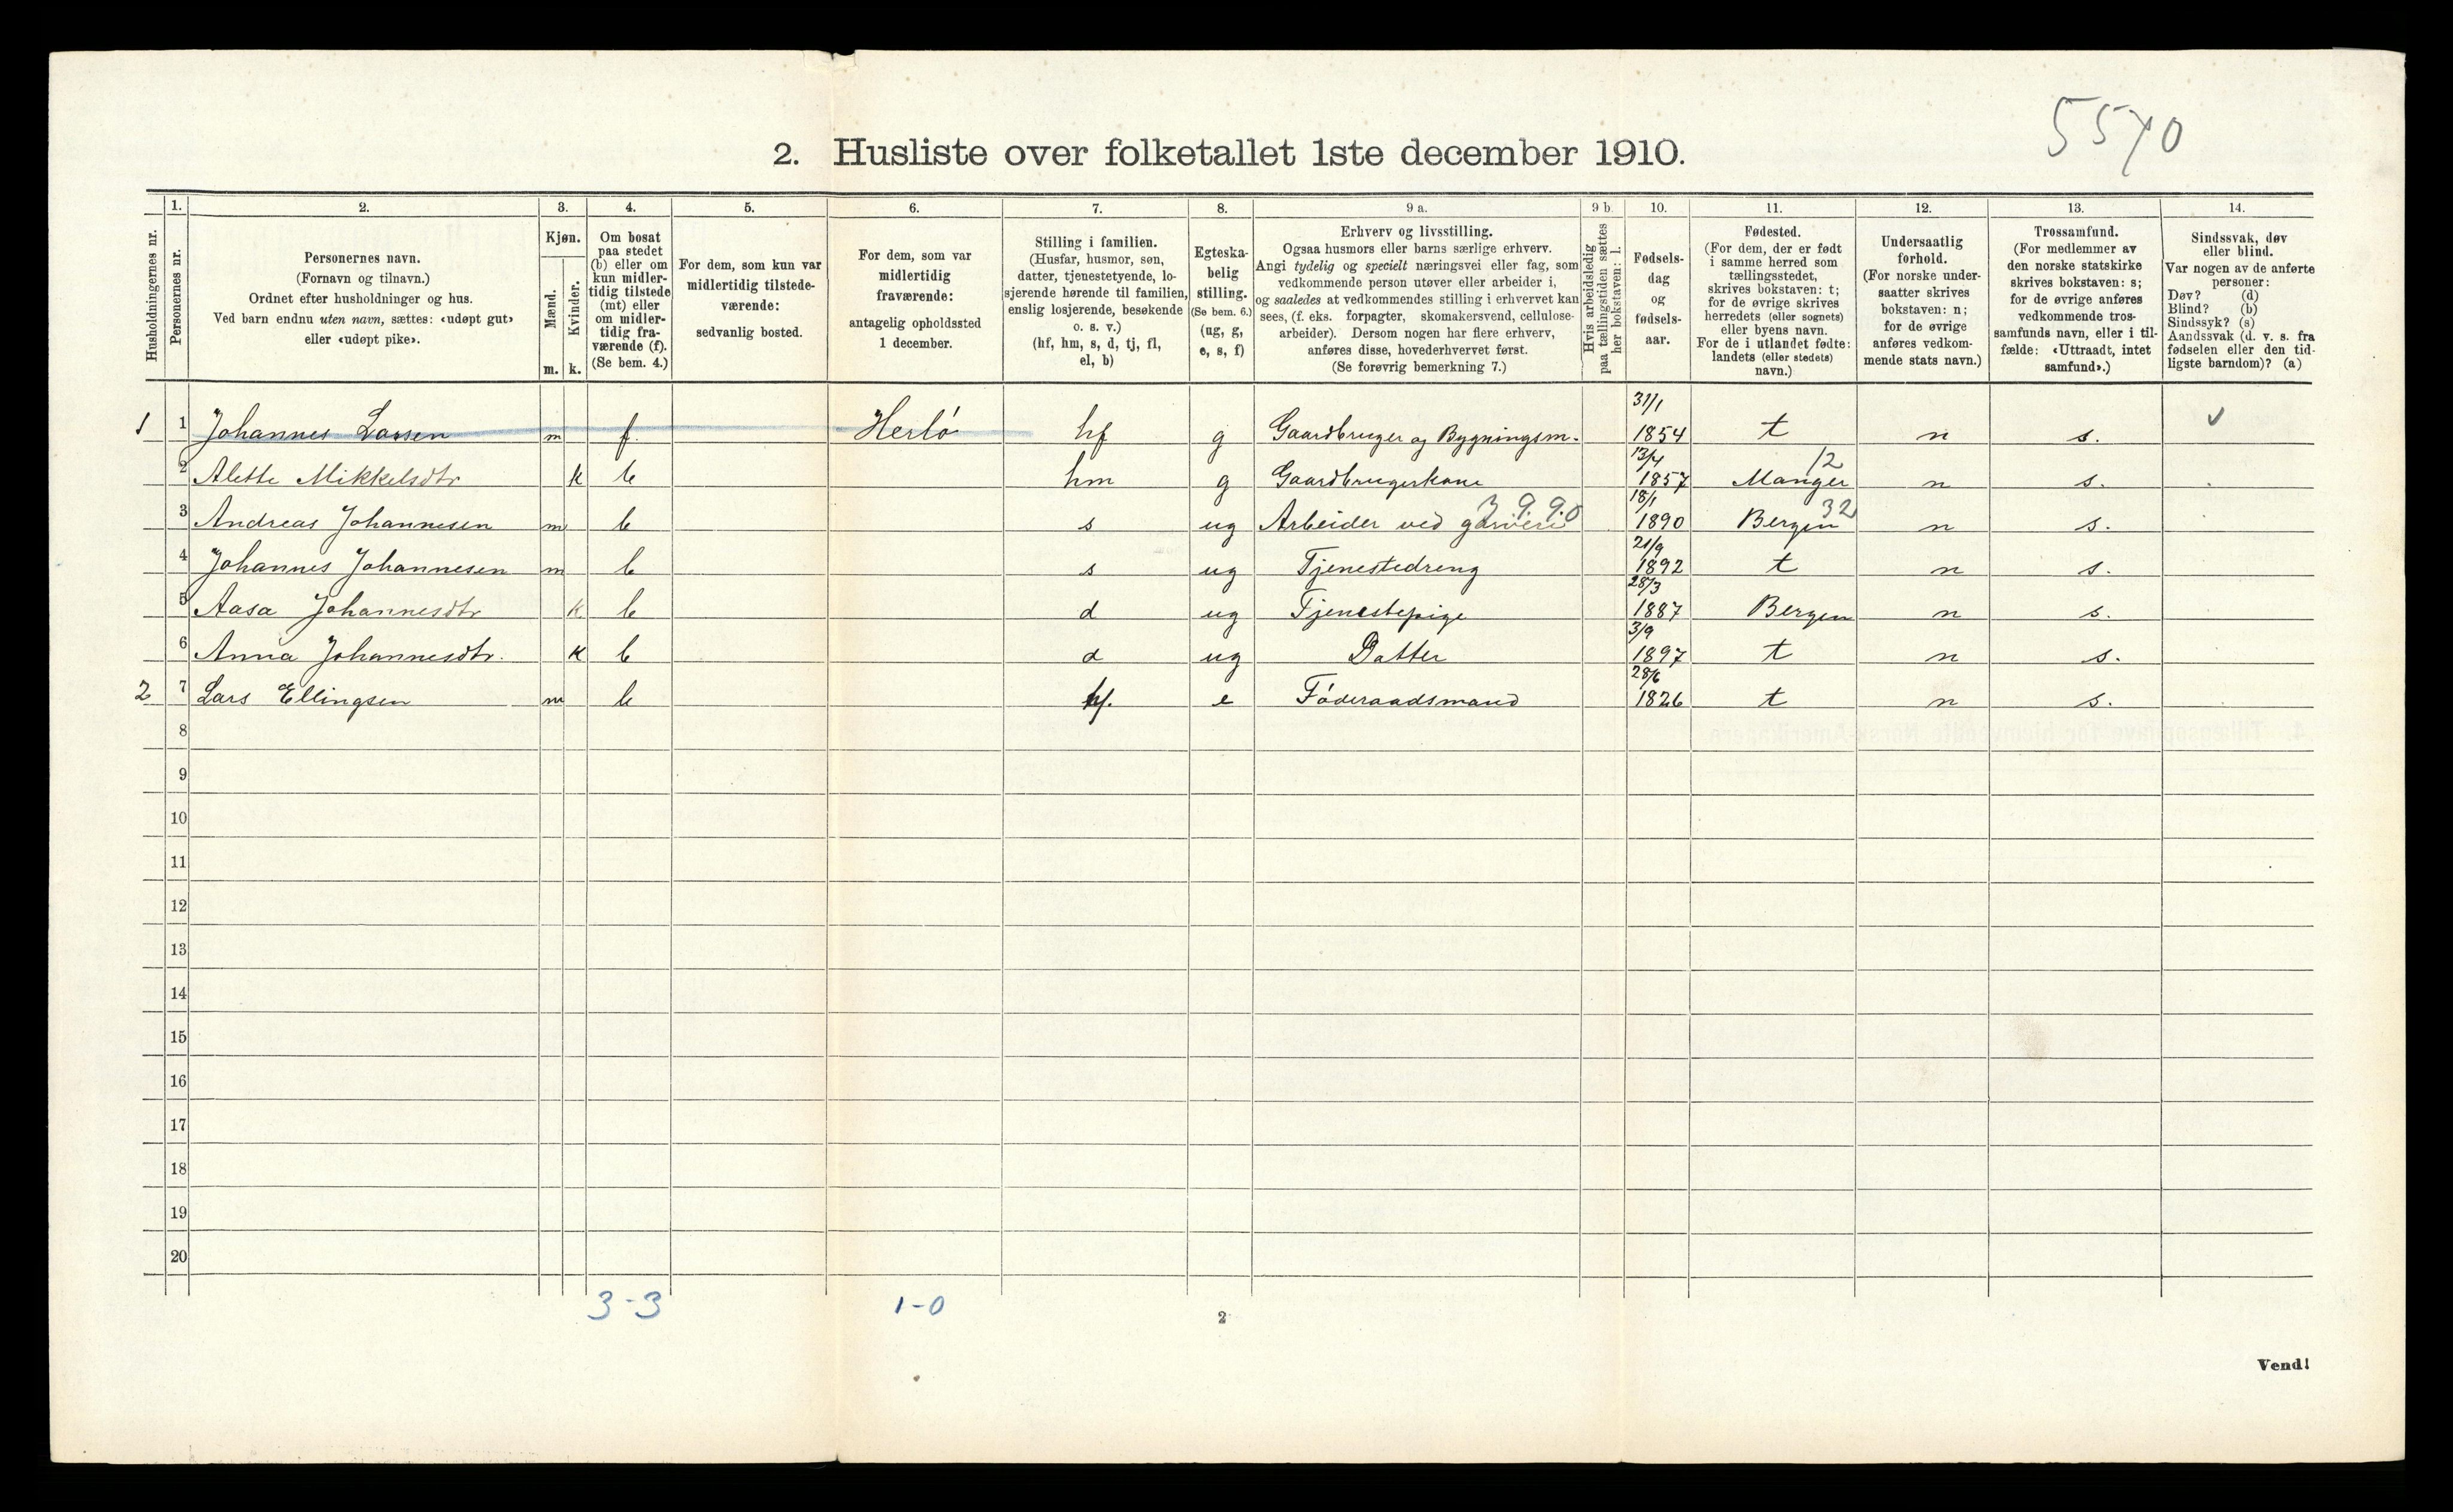 5540
2. Husliste over folketallet 1ste december 1910.
Husholdningernes nr.
1. Personernes nr.
2. Personernes navn.
(Fornavn og tilnavn.)
Ordnet efter husholdninger og hus.
Ved barn endnu uten navn, sættes: «udøpt gut»
eller «udøpt pike».
3. Kjøn.
Mænd. m.
Kvinder. k.
4. Om bosat
paa stedet
(b) eller om
kun midler-
tidig tilstede
(mt) eller
om midler-
tidig fra-
værende (f).
(Se bem. 4.)
5. For dem, som kun var
midlertidig tilstede-
værende:
sedvanlig bosted.
6. For dem, som var
midlertidig
fraværende:
antagelig opholdssted
1 december.
7. Stilling i familien.
(Husfar, husmor, søn,
datter, tjenestetyende, lo-
sjerende hørende til familien,
enslig losjerende, besøkende
o. s. v.)
(hf, hm, s, d, tj, fl,
el, b)
8. Egteska-
belig
stilling.
(Se bem. 6.)
(ug, g,
e, s, f)
9 a. Erhverv og livsstilling.
Ogsaa husmors eller barns særlige erhverv.
Angi tydelig og specielt næringsvei eller fag, som
vedkommende person utøver eller arbeider i,
og saaledes at vedkommendes stilling i erhvervet kan
sees, (f. eks. forpagter, skomakersvend, cellulose-
arbeider). Dersom nogen har flere erhverv,
anføres disse, hovederhvervet først.
(Se forøvrig bemerkning 7.)
9 b. Hvis arbeidsledig
paa tællingstiden sættes
her bokstaven: l.
10. Fødsels-
dag
og
fødsels-
aar.
11. Fødested.
(For dem, der er født
i samme herred som
tællingsstedet,
skrives bokstaven: t;
for de øvrige skrives
herredets (eller sognets)
eller byens navn.
For de i utlandet fødte:
landets (eller stedets)
navn.)
12. Undersaatlig
forhold.
(For norske under-
saatter skrives
bokstaven: n;
for de øvrige
anføres vedkom-
mende stats navn.)
13. Trossamfund.
(For medlemmer av
den norske statskirke
skrives bokstaven: s;
for de øvrige anføres
vedkommende tros-
samfunds navn, eller i til-
fælde: «Uttraadt, intet
samfund».)
14. Sindssvak, døv
eller blind.
Var nogen av de anførte
personer:
Døv? (d)
Blind? (b)
Sindssyk? (s)
Aandssvak (d. v. s. fra
fødselen eller den tid-
ligste barndom)? (a)
1 1 Johannes Larsen m f. Herlö hf g Gaardbruger og Bygningsm. 31/1 1854 t n s. ✓
2 Alette Mikkelsdtr k b hm g Gaardbrugerkone 13/4 1857 Manger 12 n s.
3 Andreas Johannesen m b s ug Arbeider ved garveri 3.9.90 18/1 1890 Bergen 32 n s.
4 Johannes Johannesen m b s ug Tjenestedreng 21/9 1892 t n s.
5 Aasa Johannesdtr k b d ug Tjenestepige 28/3 1887 Bergen n s.
6 Anna Johannesdtr. k b d ug Datter 3/9 1897 t n s.
2 7 Lars Ellingsen m b hf. e Föderaadsmand 28/6 1826 t n s.
8
9
10
11
12
13
14
15
16
17
18
19
20
3-3 1-0
2
Vend!